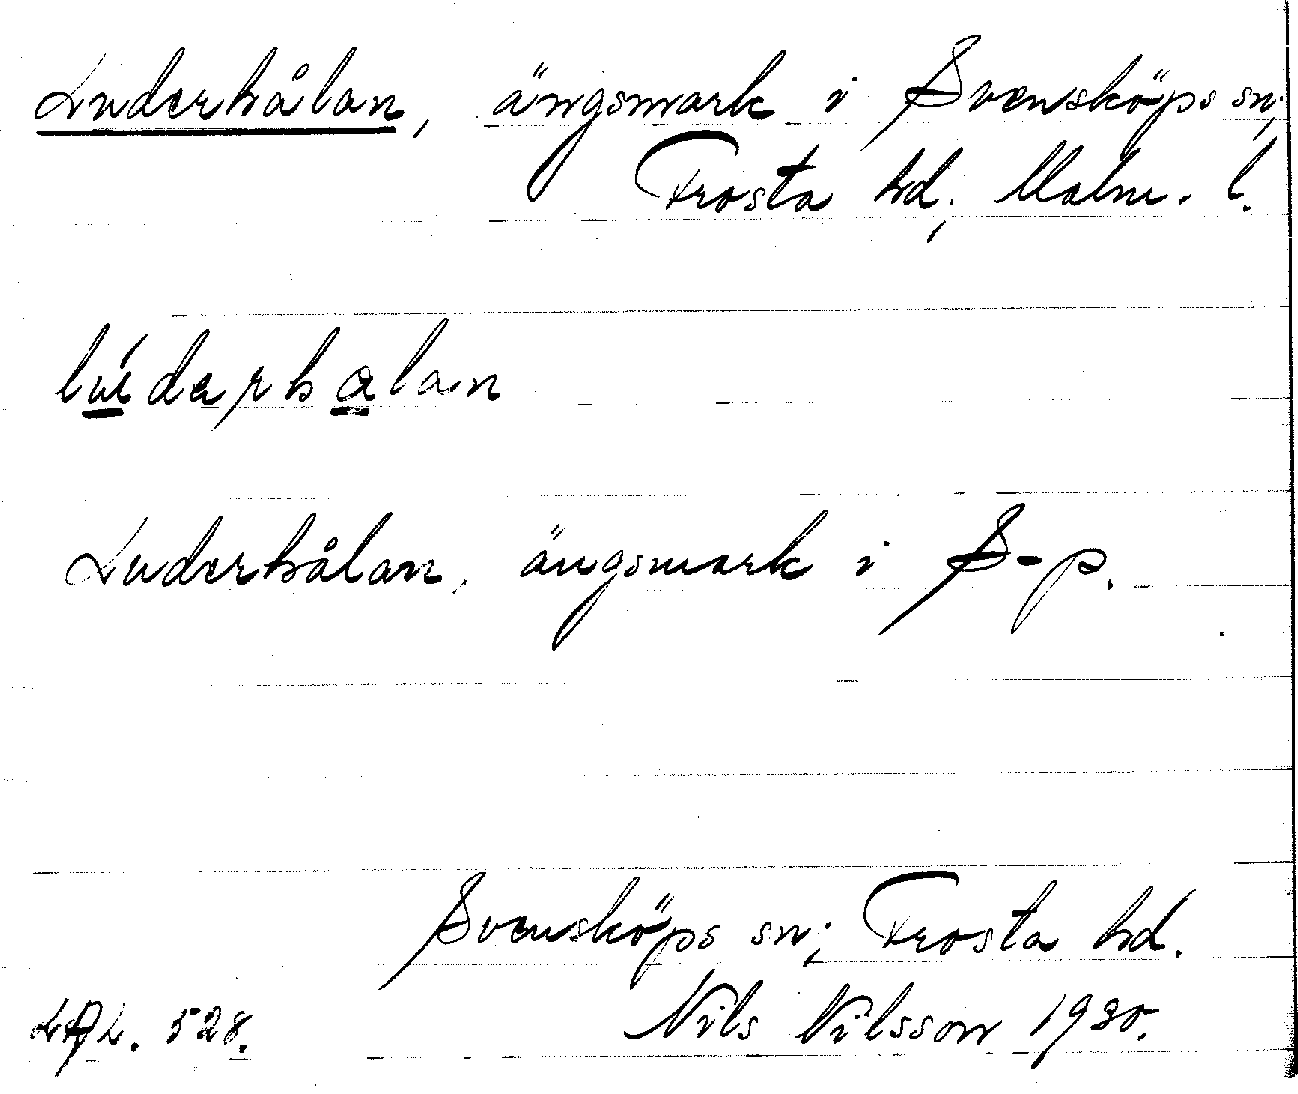 Luderhålan, ängsmark i Svensköps sn;
Frosta hd; Malm. l.
lú̲derha̲lan
Luderhålan, ängsmark i S-p.
Svensköps sn; Frosta hd.
528. Nils Nilsson 1930.